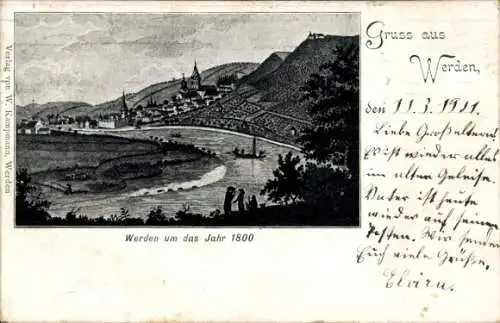 Verlag von W. Kampmann, Werden
Gruss aus
Werden,
den 11.3.1901.
Liebe Großeltern
Es ist wieder alles
im alten Geleise.
Vater ist heute
wieder auf seinen
Posten. Wir senden
Euch viele Grüße.
Werden um das Jahr 1800